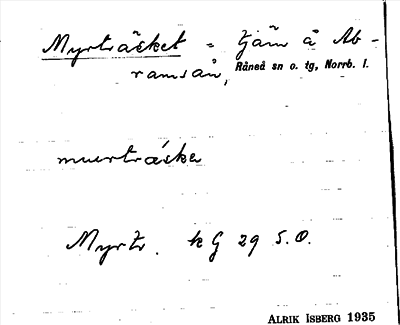 Myrträsket = tjärn å Ab-
ramsån, Råneå sn o. tg, Norrb. l.
muurträske
Myrtr. kG 29 S.O.
ALRIK ISBERG 1935